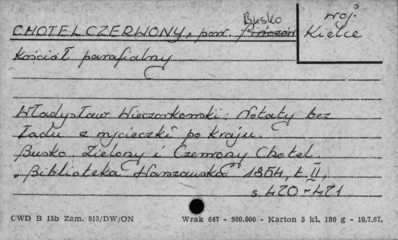 Busko
woj.
CHOTEL CZERWONY, pow. Pińczów
Kielce
Kościół parafialny
Władysław Wieczorkowski: Notaty bez
ładu z wycieczki po kraju.
Busko. Zielony i Czerwony Chotel.
„Biblioteka Warszawska" 1854, t. II,
s. 470-471
CWD B 15b Zam. 915/DW/ON Wrak 647 - 980.000 - Karton 3 kl. 180 g - 10.7.67.